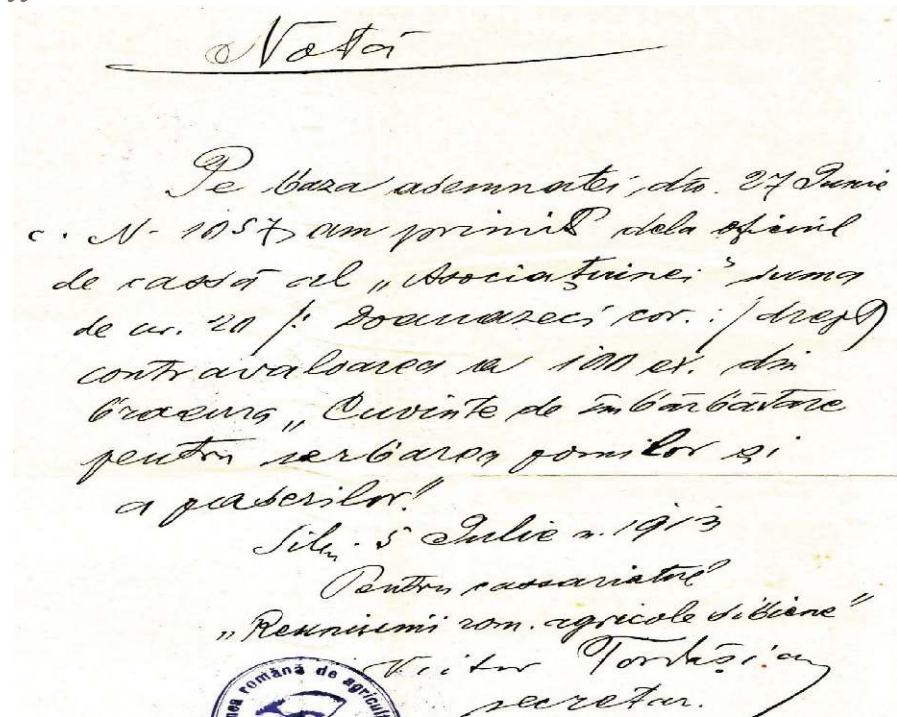 Notă
Pe baza asemnatei dto. 27 Iunie
c. N- 1057 am primit dela oficiul
de cassă al „Asociaţiunei" suma
de cor. 20 /: Douăzeci cor. :/ drept
contravaloarea a 100 ex. din
broşura „Cuvinte de îmbărbătare
pentru serbarea pomilor şi
a paserilor."
Sibiu. 5 Iulie n. 1913
Pentru cassariatul
„Reuniunii rom. agricole sibiene"
Victor Tordăşianu
secretar.
română de agricul